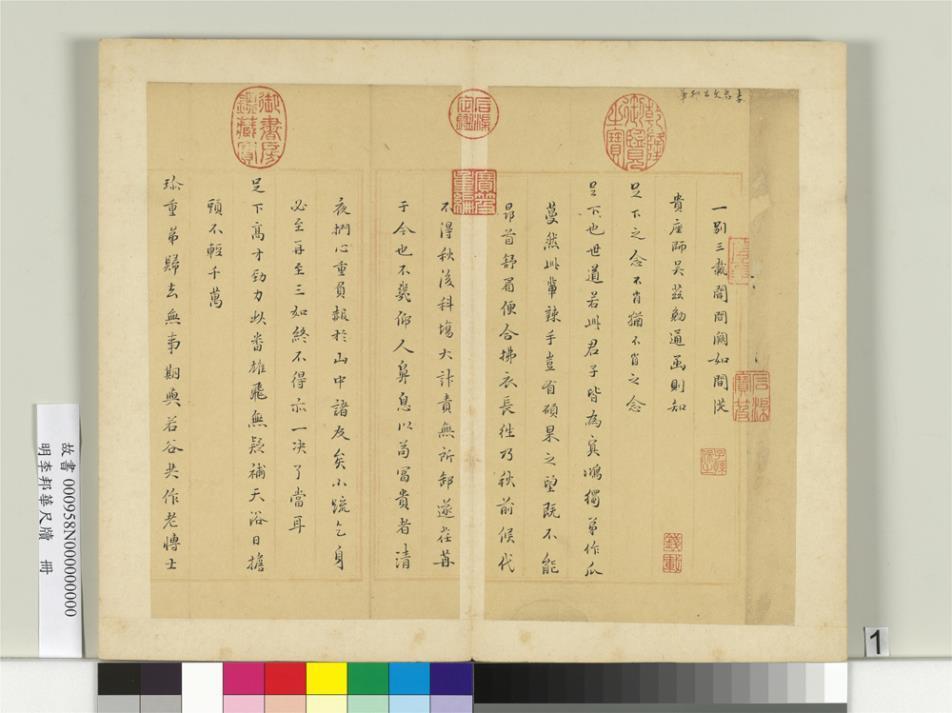 一別三載闊問闕如間從
貴座師吳茲勉通函則知
足下之念不肖猶不肖之念
足下也世道若此君子皆為冥鴻獨弟作瓜
蔓然此輩辣手豈有碩果之望既不能
昂首舒眉便合拂衣長往乃秋前候代
不得秋後科場大計責無所卸遂荏苒
于今也不幾仰人鼻息以苟富貴者清
夜捫心重負赧於山中諸友矣小疏乞身
必至再至三如終不得亦一決了當耳
足下高才勁力與當雄飛無疑補天浴日擔
頭不輕千萬
珍重弟歸去無事期與若谷共作老博士
乾隆御覽之寶
石渠定鑑
寶笈重編
御書房鑑藏寶
石渠寶笈
故書 000958N000000000
明李邦華尺牘 冊
1